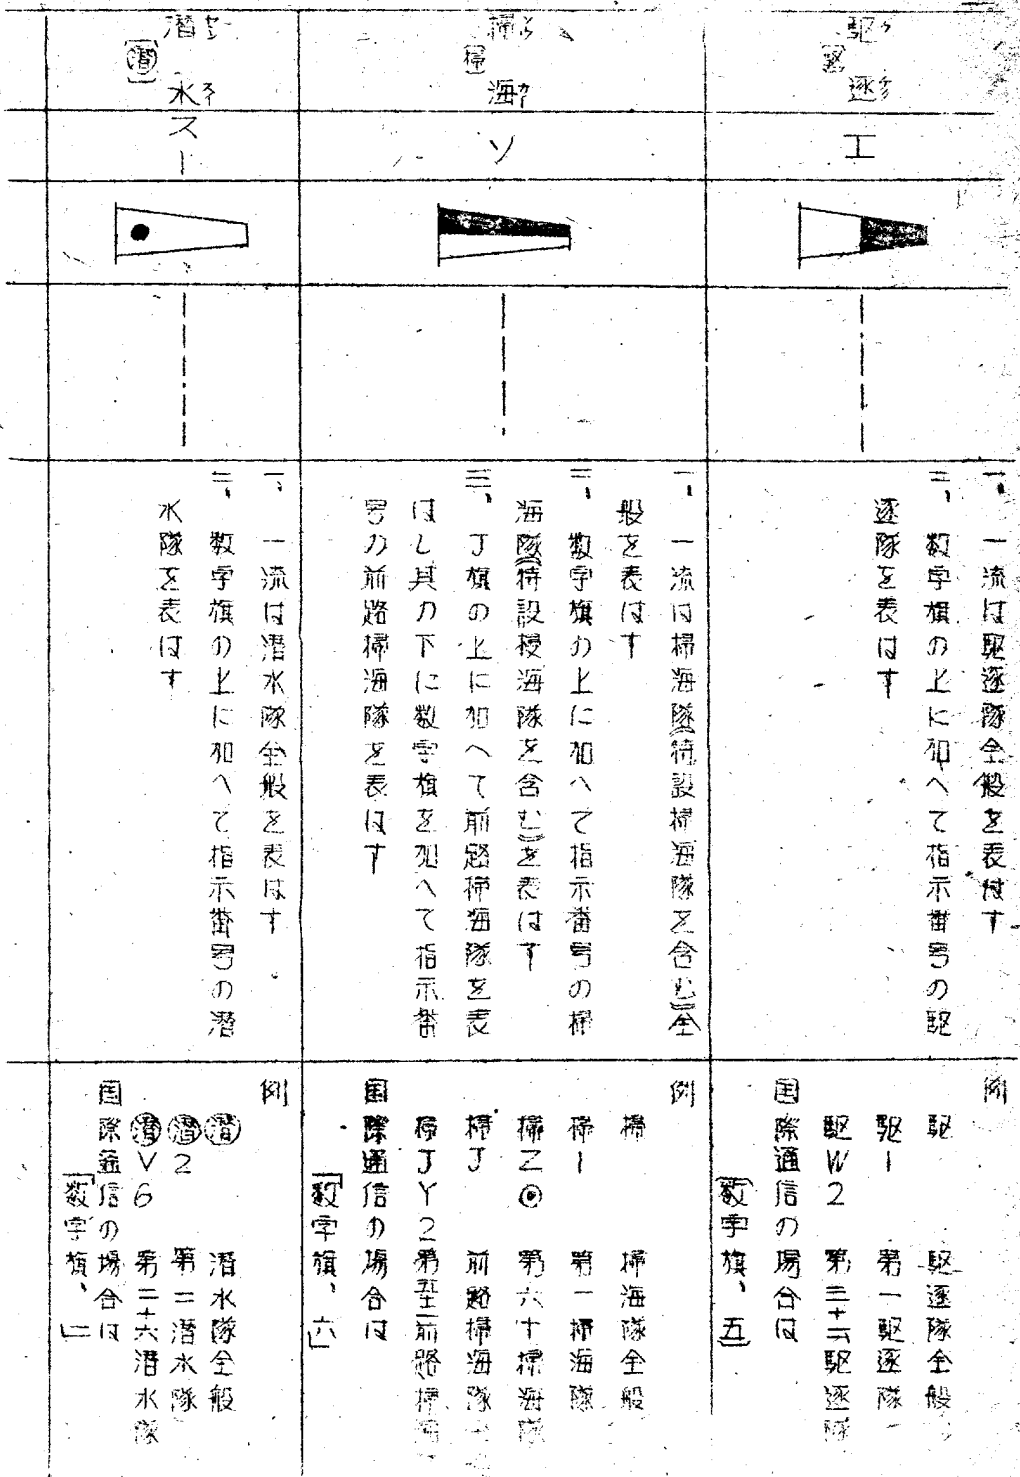 駆逐
〔駆〕
エ
一、一流は駆逐隊全般を表はす
二、数字旗の上に加へて指示番号の駆
逐隊を表はす
例
駆 駆逐隊全般
駆1 第一駆逐隊
駆W2 第三十二駆逐隊
国際通信の場合は
「数字旗、五」
掃海
〔掃〕
ソ
一、一流は掃海隊(特設掃海隊を含む)全
般を表はす
二、数字旗の上に加へて指示番号の掃
海隊(特設掃海隊を含む)を表はす
三、J旗の上に加へて前路掃海隊を表
はし其の下に数字旗を加へて指示番
号の前路掃海隊を表はす
例
掃 掃海隊全般
掃1 第一掃海隊
掃Z⦿ 第六十掃海隊
掃J 前路掃海隊
掃JY2 前路掃海
国際通信の場合は
「数字旗、六」
潜水
〔㊙〕
スー
一、一流は潜水隊全般を表はす
二、数字旗の上に加へて指示番号の潜
水隊を表はす
例
潜 潜水隊全般
潜2 第二潜水隊
潜V6 第二十六潜水隊
国際通信の場合は
「数字旗、二」